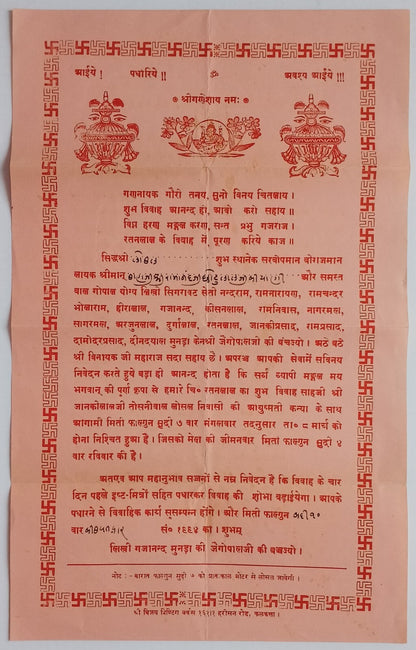 आईये ! पधारिये !! ॐ अवश्य आईये !!!
श्रीगणेशाय नमः
गणनायक गौरी तनय, सुनो विनय चितलाय ।
शुभ विवाह आनन्द हो, आवो करो सहाय ॥
विघ्न हरण मङ्गल करण, सन्त प्रभु गजराज ।
रतनलाल के विवाह में पूरण करिये काज ॥
सिद्धश्री शुभ स्थानेक सरवोपमान बीराजमान
लायक श्रीमान् और समस्त
बाल गोपाल योग्य लिखी सिगरावट सेती नन्दराम, रामनारायण, रामचन्दर
भोलाराम, हीरालाल, गजानन्द, कीसनलाल, रामनिवास, नागरमल,
सागरमल, अरजुनलाल, दुर्गालाल, रतनलाल, जानकीप्रसाद, रामप्रसाद,
दामोदरप्रसाद, दीनदयाल मुनड़ा केनश्री जैगोपालजी की बंचज्यो । अठे बठे
श्री विनायक जी महाराज सदा सहाय छे । अपरञ्च आपकी सेवामें सविनय
निवेदन करते हुये बड़ा ही आनन्द होता है कि सर्व्व व्यापी मङ्गल मय
भगवान् की पूर्ण कृपा से हमारे चि० रतनलाल का शुभ विवाह साहजी श्री
जानकीलालजी तोसनीवाल लोसल निवासी की आयुष्मती कन्या के साथ
आगामी मिती फाल्गुन सुदी ७ वार मंगलवार तदनुसार ता० ८ मार्च को
होना निश्चित हुआ है । जिसको मेल को जीमनवार मिती फाल्गुन सुदी ४
वार रविवार की है ।
अतएव आप महानुभाव सजनों से नम्र निवेदन है कि विवाह के चार
दिन पहले इष्ट-मित्रों सहित पधारकर विवाह की शोभा बढ़ाईयेगा । आपके
पधारने से विवाहिक कार्य सुसम्पन्न होंगे । और मिती फाल्गुन बदी १०
वार सं० १९९४ का । शुभम्
लिखी गजानन्द मुनड़ा की जैगोपालजी की बंचज्यो ।
नोट :-बारात फाल्गुन सुदी ७ को प्रातःकाल मोटर में लोसल जावेगी ।
श्री विजय प्रिण्टिंग वर्क्स हरीसन रोड, कलकत्ता ।